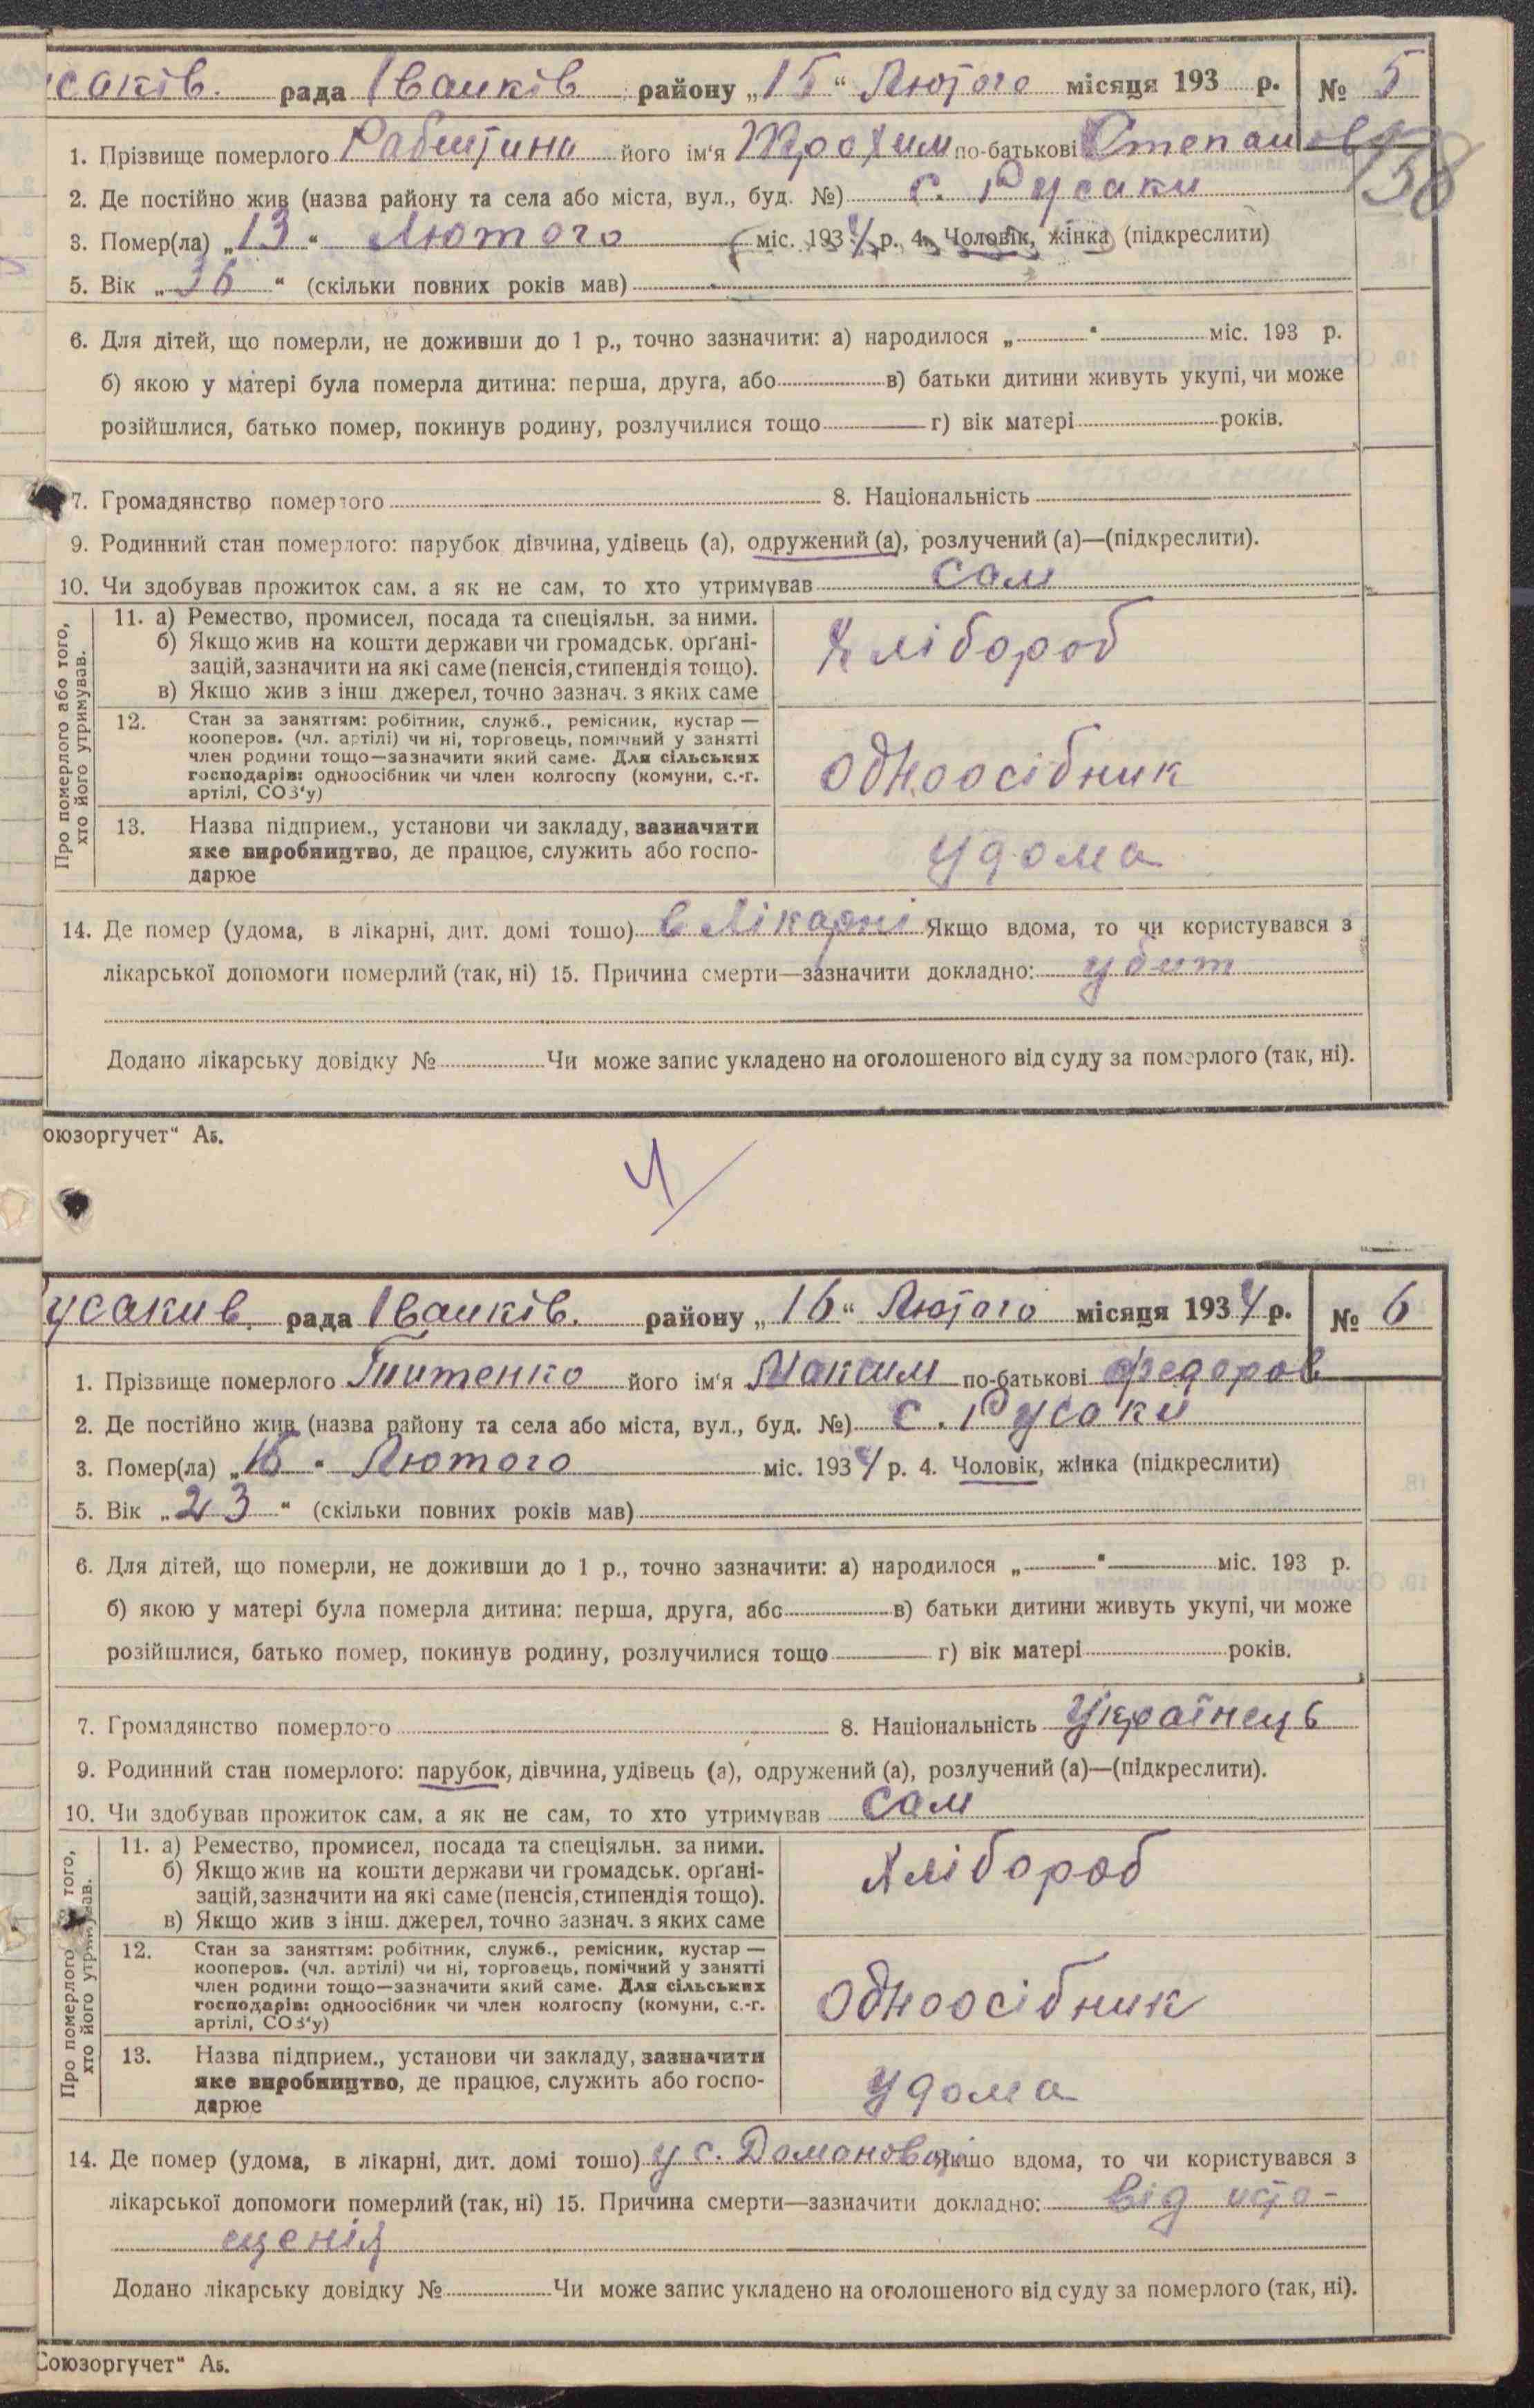 усаків. рада Іванків району „15“ Лютого місяця 193 р. № 5
1. Прізвище померлого його ім'я Трохим по-батькові Степанов
158
2. Де постійно жив (назва району та села або міста, вул., буд. №) с. Русаки
3. Помер(ла) „13“ Лютого міс. 1934 р. 4. Чоловік, жінка (підкреслити)
5. Вік „36“ (скільки повних років мав)
6. Для дітей, що померли, не доживши до 1 р., точно зазначити: а) народилося „ “ міс. 193 р.
б) якою у матері була померла дитина: перша, друга, або в) батьки дитини живуть укупі, чи може
розійшлися, батько помер, покинув родину, розлучилися тощо г) вік матері років.
7. Громадянство померлого 8. Національність
9. Родинний стан померлого: парубок дівчина, удівець (а), одружений (а), розлучений (а)—(підкреслити).
10. Чи здобував прожиток сам, а як не сам, то хто утримував сам
Про померлого або того, хто його утримував.
11. а) Ремество, промисел, посада та спеціяльн. за ними.
б) Якщо жив на кошти держави чи громадськ. органі-
зацій, зазначити на які саме (пенсія, стипендія тощо).
в) Якщо жив з інш джерел, точно зазнач. з яких саме
Хлібороб
12. Стан за заняттям: робітник, служб., ремісник, кустар —
кооперов. (чл. артілі) чи ні, торговець, помічний у занятті
член родини тощо—зазначити який саме. Для сільських
господарів: одноосібник чи член колгоспу (комуни, с.-г.
артілі, СОЗ'у)
одноосібник
13. Назва підприєм., установи чи закладу, зазначити
яке виробництво, де працює, служить або госпо-
дарює
удома
14. Де помер (удома, в лікарні, дит. домі тощо) в лікарні Якщо вдома, то чи користувався з
лікарської допомоги померлий (так, ні) 15. Причина смерти—зазначити докладно: убит
Додано лікарську довідку № Чи може запис укладено на оголошеного від суду за померлого (так, ні).
оюзоргучет“ А5.
Русакив. рада Іванків. району „16“ Лютого місяця 1934 р. № 6
1. Прізвище померлого його ім'я Максим по-батькові Федоров
2. Де постійно жив (назва району та села або міста, вул., буд. №) с. Русаки
3. Помер(ла) „16“ Лютого міс. 1934 р. 4. Чоловік, жінка (підкреслити)
5. Вік „23“ (скільки повних років мав)
6. Для дітей, що померли, не доживши до 1 р., точно зазначити: а) народилося „ “ міс. 193 р.
б) якою у матері була померла дитина: перша, друга, або в) батьки дитини живуть укупі, чи може
розійшлися, батько помер, покинув родину, розлучилися тощо г) вік матері років.
7. Громадянство померлого 8. Національність Українець
9. Родинний стан померлого: парубок, дівчина, удівець (а), одружений (а), розлучений (а)—(підкреслити).
10. Чи здобував прожиток сам, а як не сам, то хто утримував сам
Про померлого того, хто його утримував.
11. а) Ремество, промисел, посада та спеціяльн. за ними.
б) Якщо жив на кошти держави чи громадськ. органі-
зацій, зазначити на які саме (пенсія, стипендія тощо).
в) Якщо жив з інш. джерел, точно зазнач. з яких саме
Хлібороб
12. Стан за заняттям: робітник, служб., ремісник, кустар —
кооперов. (чл. артілі) чи ні, торговець, помічний у занятті
член родини тощо—зазначити який саме. Для сільських
господарів: одноосібник чи член колгоспу (комуни, с.-г.
артілі, СОЗ'у)
Одноосібник
13. Назва підприєм., установи чи закладу, зазначити
яке виробництво, де працює, служить або госпо-
дарює
удома
14. Де помер (удома, в лікарні, дит. домі тощо) у с. Домановці Якшо вдома, то чи користувався з
лікарської допомоги померлий (так, ні) 15. Причина смерти—зазначити докладно: від исто-
щенія
Додано лікарську довідку № Чи може запис укладено на оголошеного від суду за померлого (так, ні).
Союзоргучет“ А5.